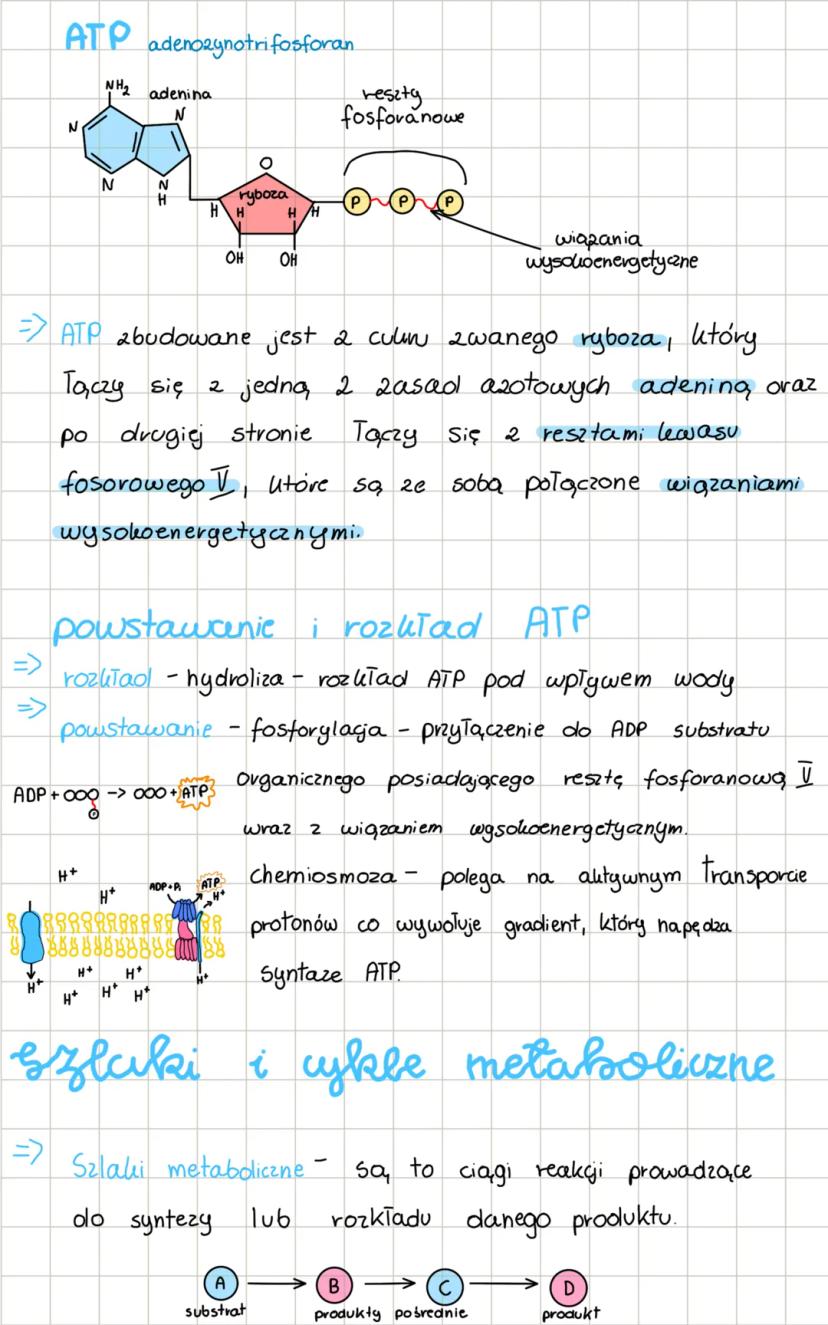 ATP adenozynotrifosforan
NH₂ adenina
N N
N N
H
reszty
fosforanowe
O
ryboza
H H H H
OH OH
P P P
wiązania
wysokoenergetyczne
=> ATP zbudowane jest z cukru zwanego ryboza, który
łączy się z jedną z zasad azotowych adeniną oraz
po drugiej stronie łączy się z resztami kwasu
fosorowego V, które są ze sobą połączone wiązaniami
wysokoenergetycznymi.
powstawanie i rozkład ATP
=> rozkład - hydroliza - rozkład ATP pod wpływem wody
=> powstawanie - fosforylacja - przyłączenie do ADP substratu
organicznego posiadającego resztę fosforanową V
ADP + ooo -> ooo + ATP
wraz z wiązaniem wysokoenergetycznym.
chemiosmoza - polega na aktywnym transporcie
protonów co wywołuje gradient, który napędza
syntaze ATP.
H⁺ H⁺ ADP+Pi ATP H⁺
H⁺ H⁺ H⁺ H⁺ H⁺ H⁺ H⁺
Szlaki i cykle metaboliczne
=> Szlaki metaboliczne - są to ciągi reakcji prowadzące
do syntezy lub rozkładu danego produktu.
A -> B -> C -> D
substrat produkty pośrednie produkt